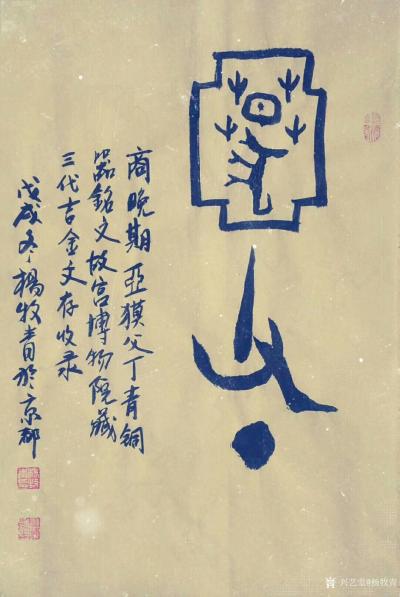 商晚期亞獏父丁青铜
器銘文故宫博物院藏
三代吉金文存收录
戊戌冬楊牧青於京都
兴艺堂@杨牧青